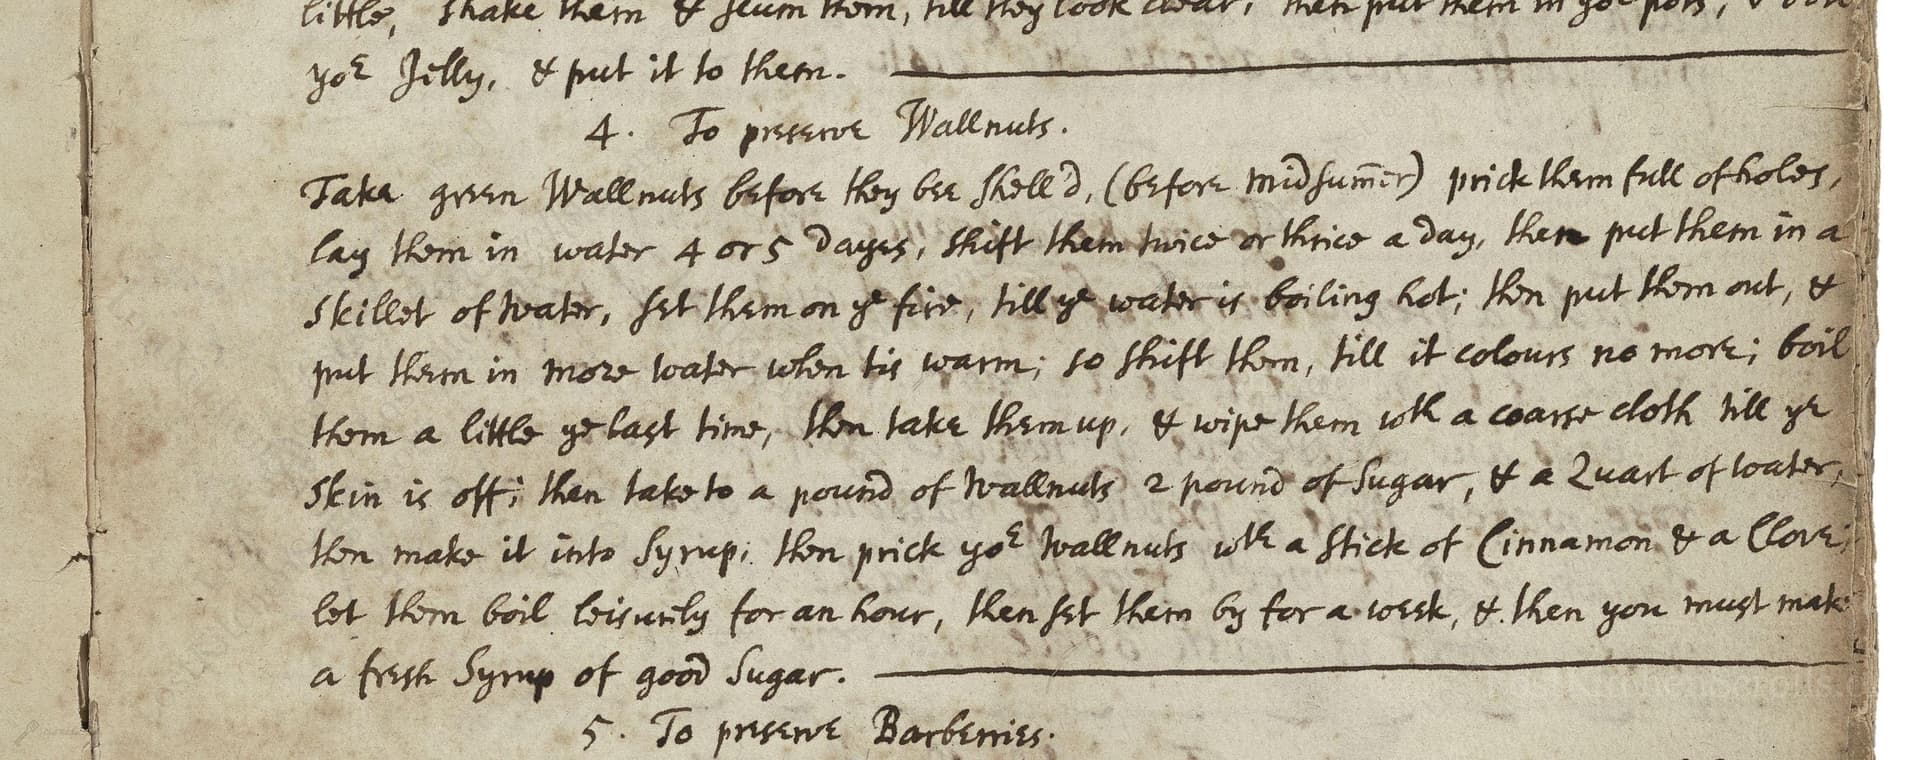 little, shake them & scum them, till they look clear, then put them in yor pots, & boil
yor Jelly, & put it to them.
4. To preserve Wallnuts.
Take green Wallnuts before they bee shell'd, (before midsum̄er) prick them full of holes,
lay them in water 4 or 5 dayes, shift them twice or thrice a day, then put them in a
skillet of water, set them on ye fire, till ye water is boiling hot; then put them out, &
put them in more water when tis warm; so shift them, till it colours no more; boil
them a little ye last time, then take them up, & wipe them wth a coarse cloth till ye
skin is off; then take to a pound of Wallnuts 2 pound of Sugar, & a Quart of water,
then make it into Syrup; then prick yor Wallnuts wth a stick of Cinnamon & a Clove;
let them boil leisurely for an hour, then set them by for a week, & then you must make
a fresh Syrup of good Sugar.
5. To preserve Barberries.